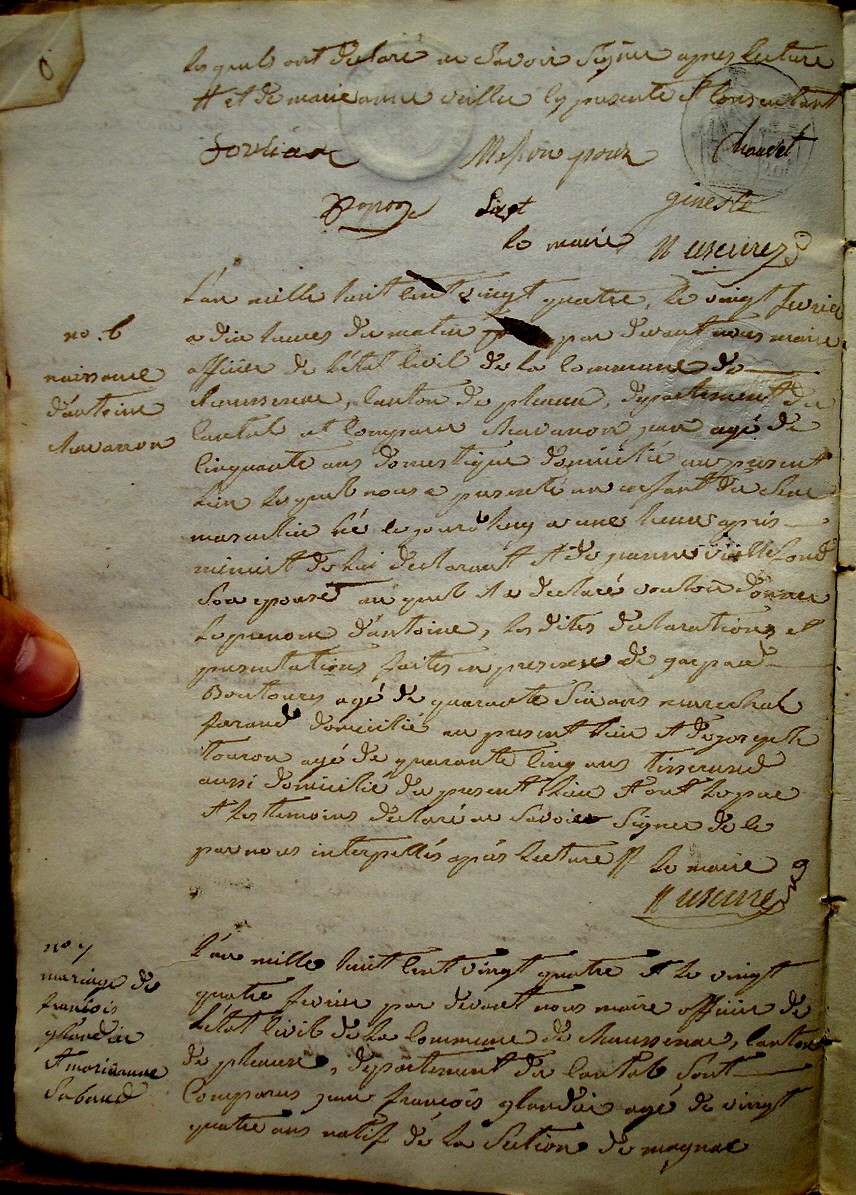 lesquels ont declaré ne savoir signer apres lecture
# et de marie anne veillu ly presente et consentant
pour Chauvet
Sixt ginestz
le maire
L'an mille huit cent vingt quatre, le vingt fevrier
no. 6
a dix heures du matin par devant nous maire
naissance
officier de l'état civil de la commune de
d'antoine
Chaussenac, canton de pleaux, departement du
Chavanon
Cantal est comparu Chavanon jean agé de
cinquante ans domestique domicilié au present
lieu lequel nous a presenté un enfant du sexe
masculin né le jour d'huy a une heure apres
minuit de lui declarant et de jeanne vielle fond
son epouse auquel il a declaré vouloir donner
le prenom d'antoine, les dites declarations et
presentations faites en presence de gaspard
Boutoures agé de quarante six ans marechal
farand domicilié au present lieu et de joseph
touron agé de quarante cinq ans tisserand
aussi domicilié du present lieu et ont le pere
et les temoins declaré ne savoir signer de le
par nous interpellés après lecture # le maire
no 7
L'an mille huit cent vingt quatre et le vingt
mariage de
quatre fevrier par devant nous maire officier de
francois
l'état civil de la commune de Chaussenac, canton
glandin
de pleaux, departement du Cantal sont
et marieanne
Comparus jean francois glandin agé de vingt
Sabaud
quatre ans natif de la section de magnac